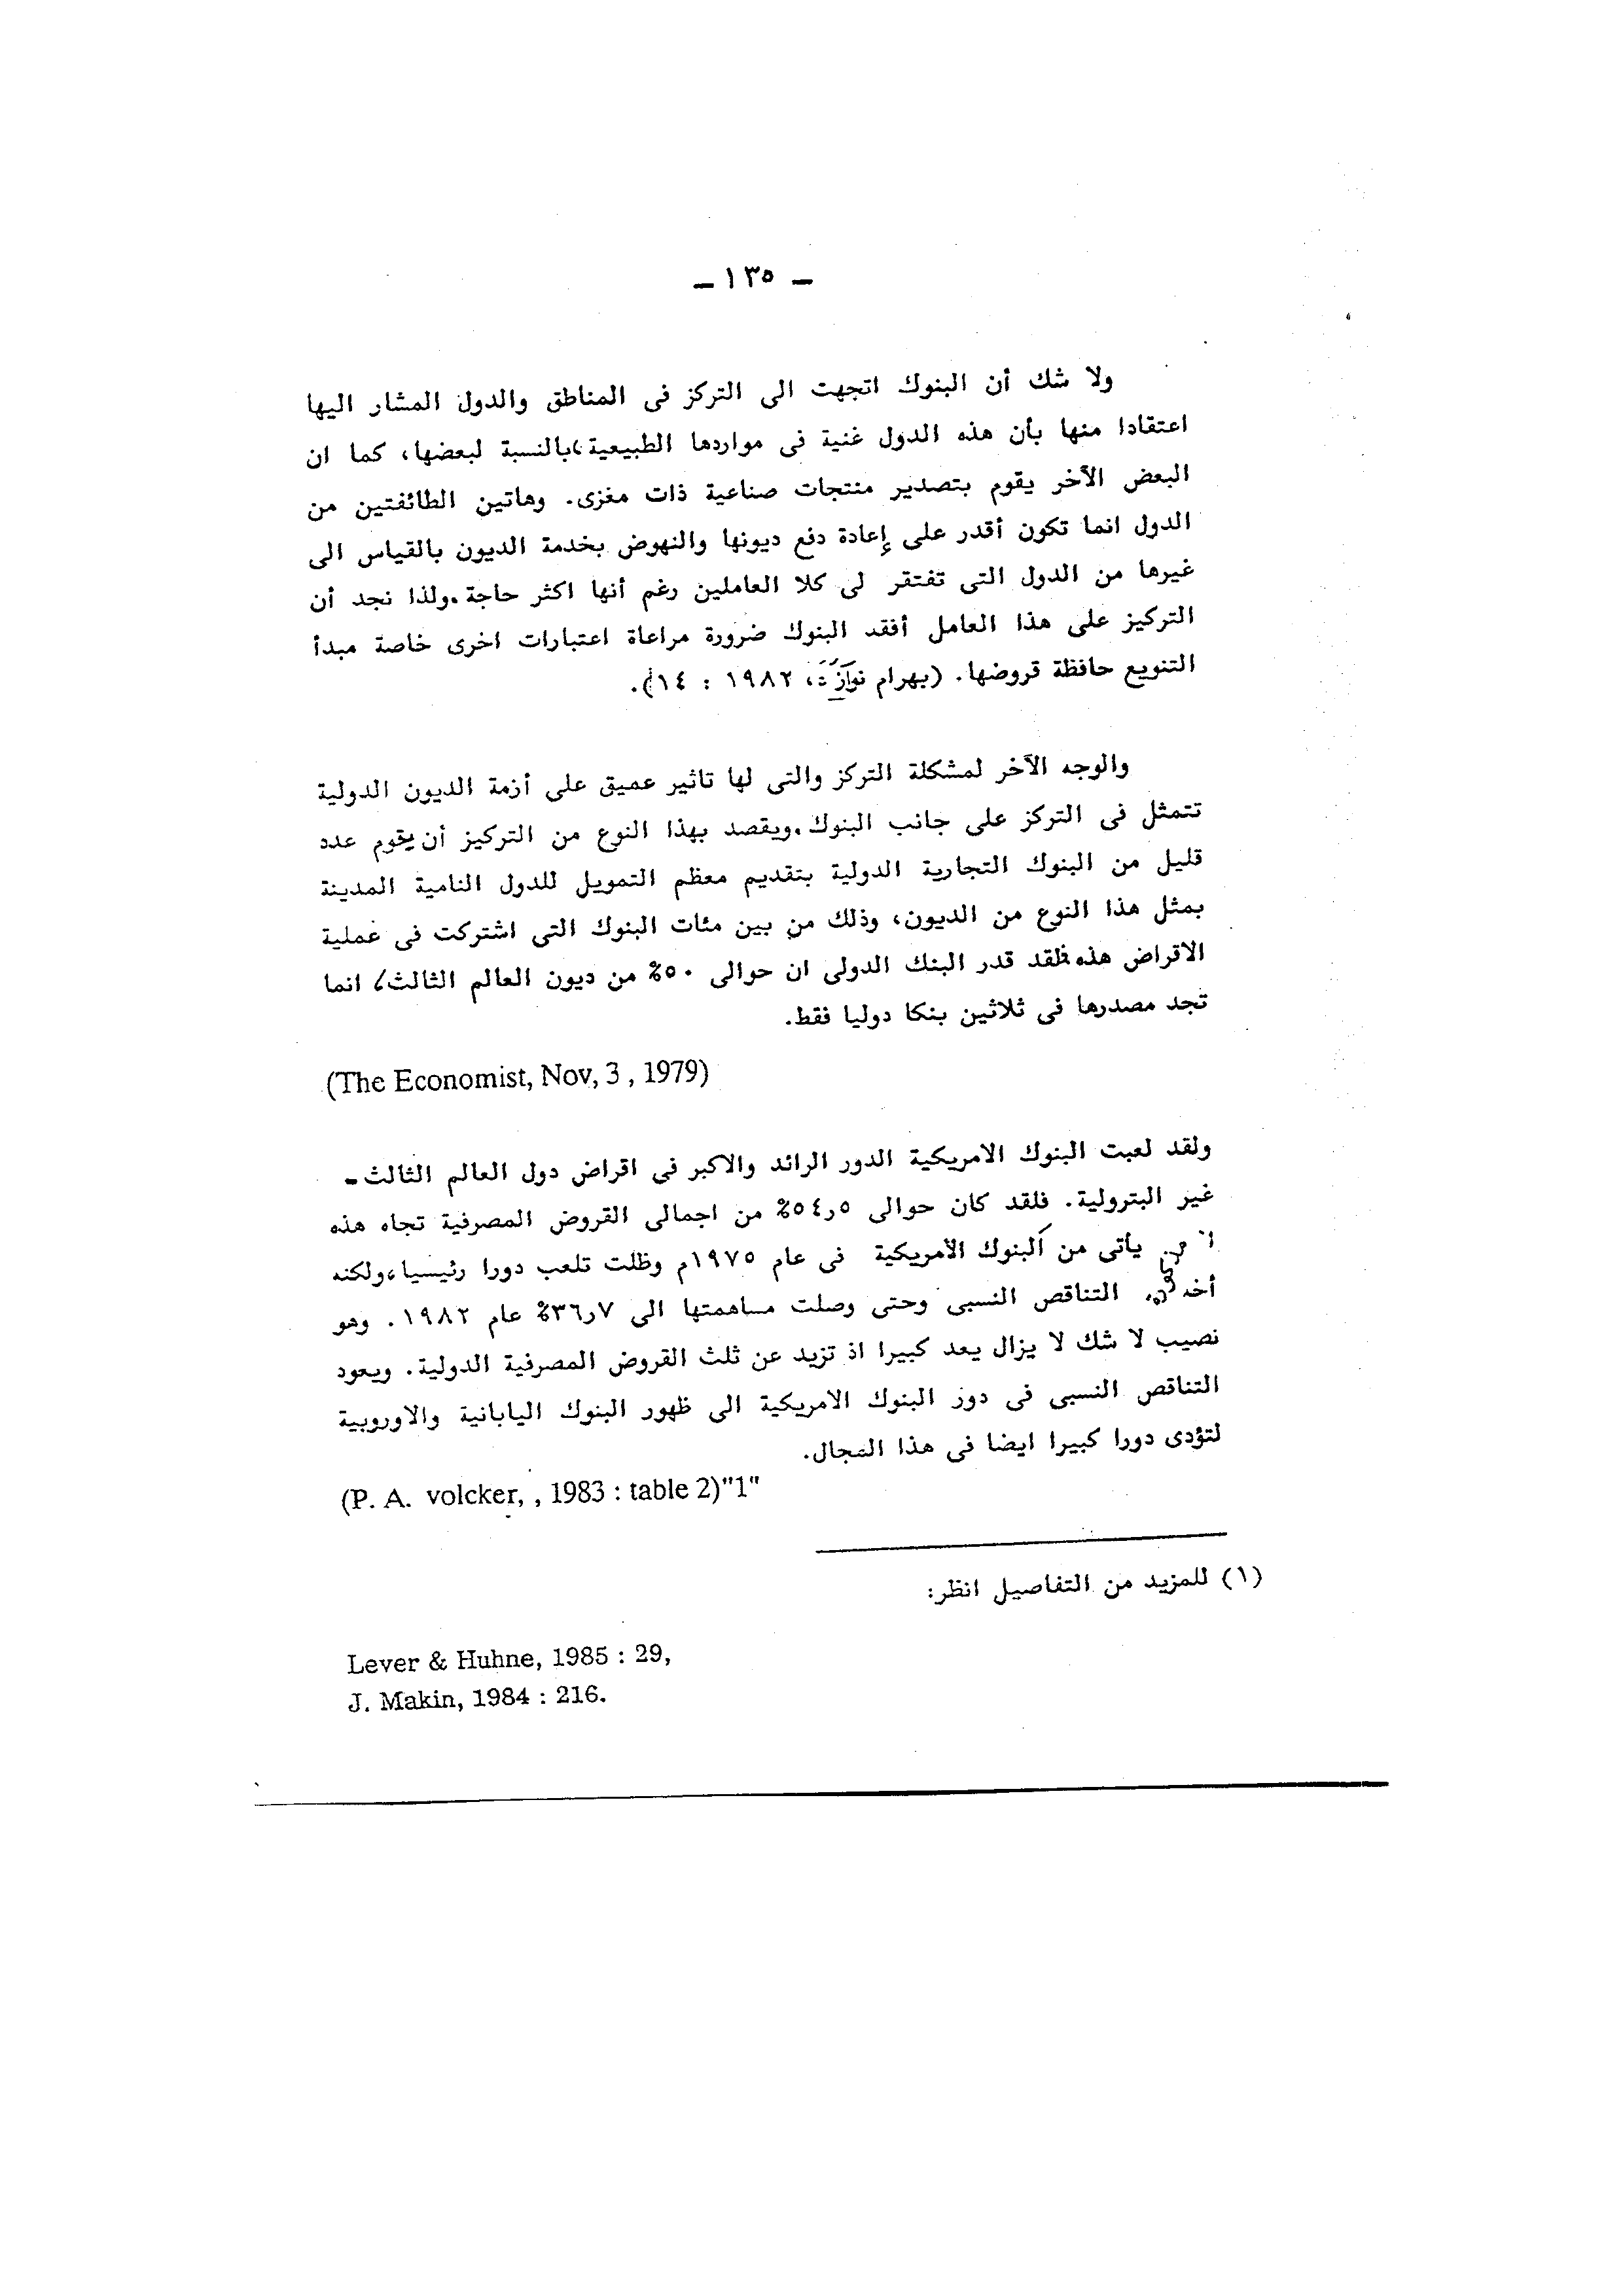 – ١٣٥ –
ولا شك أن البنوك اتجهت الى التركز فى المناطق والدول المشار اليها
اعتقادا منها بأن هذه الدول غنية فى مواردها الطبيعية، بالنسبة لبعضها، كما ان
البعض الآخر يقوم بتصدير منتجات صناعية ذات مغزى. وهاتين الطائفتين من
الدول انما تكون أقدر على إعادة دفع ديونها والنهوض بخدمة الديون بالقياس الى
غيرها من الدول التى تفتقر لى كلا العاملين رغم أنها اكثر حاجة. ولذا نجد أن
التركيز على هذا العامل أفقد البنوك ضرورة مراعاة اعتبارات اخرى خاصة مبدأ
التنويع حافظة قروضها. (بهرام ١٩٨٢ : ١٤).
والوجه الآخر لمشكلة التركز والتى لها تاثير عميق على أزمة الديون الدولية
تتمثل فى التركز على جانب البنوك. ويقصد بهذا النوع من التركيز أن يقوم عدد
قليل من البنوك التجارية الدولية بتقديم معظم التمويل للدول النامية المدينة
بمثل هذا النوع من الديون، وذلك من بين مئات البنوك التى اشتركت فى عملية
الاقراض هذه فلقد قدر البنك الدولى ان حوالى ٥٠% من ديون العالم الثالث، انما
تجد مصدرها فى ثلاثين بنكا دوليا فقط.
(The Economist, Nov, 3 , 1979)
ولقد لعبت البنوك الامريكية الدور الرائد والاكبر فى اقراض دول العالم الثالث –
غير البترولية. فلقد كان حوالى ٥ر٥٤% من اجمالى القروض المصرفية تجاه هذه
يأتى من البنوك الأمريكية فى عام ١٩٧٥م وظلت تلعب دورا رئيسيا، ولكنه
أخذ التناقص النسبى وحتى وصلت مساهمتها الى ٧ر٣٦% عام ١٩٨٢. وهو
نصيب لا شك لا يزال يعد كبيرا اذ تزيد عن ثلث القروض المصرفية الدولية. ويعود
التناقص النسبى فى دور البنوك الامريكية الى ظهور البنوك اليابانية والاوروبية
لتؤدى دورا كبيرا ايضا فى هذا المجال.
(P. A. volcker, , 1983 : table 2)"1"
(١) للمزيد من التفاصيل انظر:
Lever & Huhne, 1985 : 29,
J. Makin, 1984 : 216.